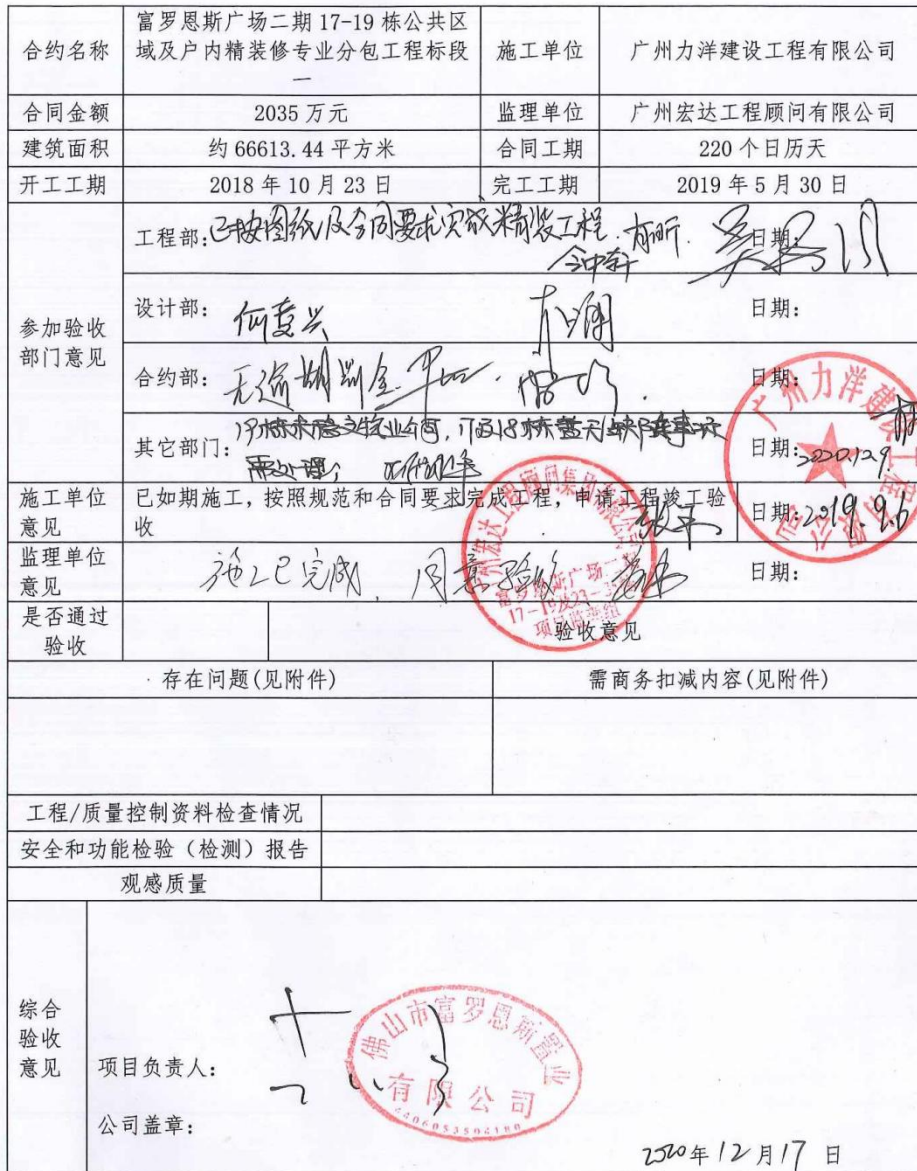 合约名称
富罗恩斯广场二期 17-19 栋公共区
域及户内精装修专业分包工程标段
一
施工单位
广州力洋建设工程有限公司
合同金额
2035 万元
监理单位
广州宏达工程顾问有限公司
建筑面积
约 66613.44 平方米
合同工期
220 个日历天
开工工期
2018 年 10 月 23 日
完工工期
2019 年 5 月 30 日
参加验收
部门意见
工程部：已按图纸及合同要求完成精装工程
日期：
设计部：
日期：
合约部：无逾期罚金
日期：
其它部门：
日期：2020.12.9.
施工单位
意见
已如期施工，按照规范和合同要求完成工程，申请工程竣工验
收
日期：2019.9.6
监理单位
意见
施工已完成，同意验收
日期：
是否通过
验收
验收意见
存在问题(见附件)
需商务扣减内容(见附件)
工程/质量控制资料检查情况
安全和功能检验（检测）报告
观感质量
综合
验收
意见
项目负责人：
公司盖章：
佛山市富罗恩斯置业
有限公司
4406053502180
2020 年 12 月 17 日